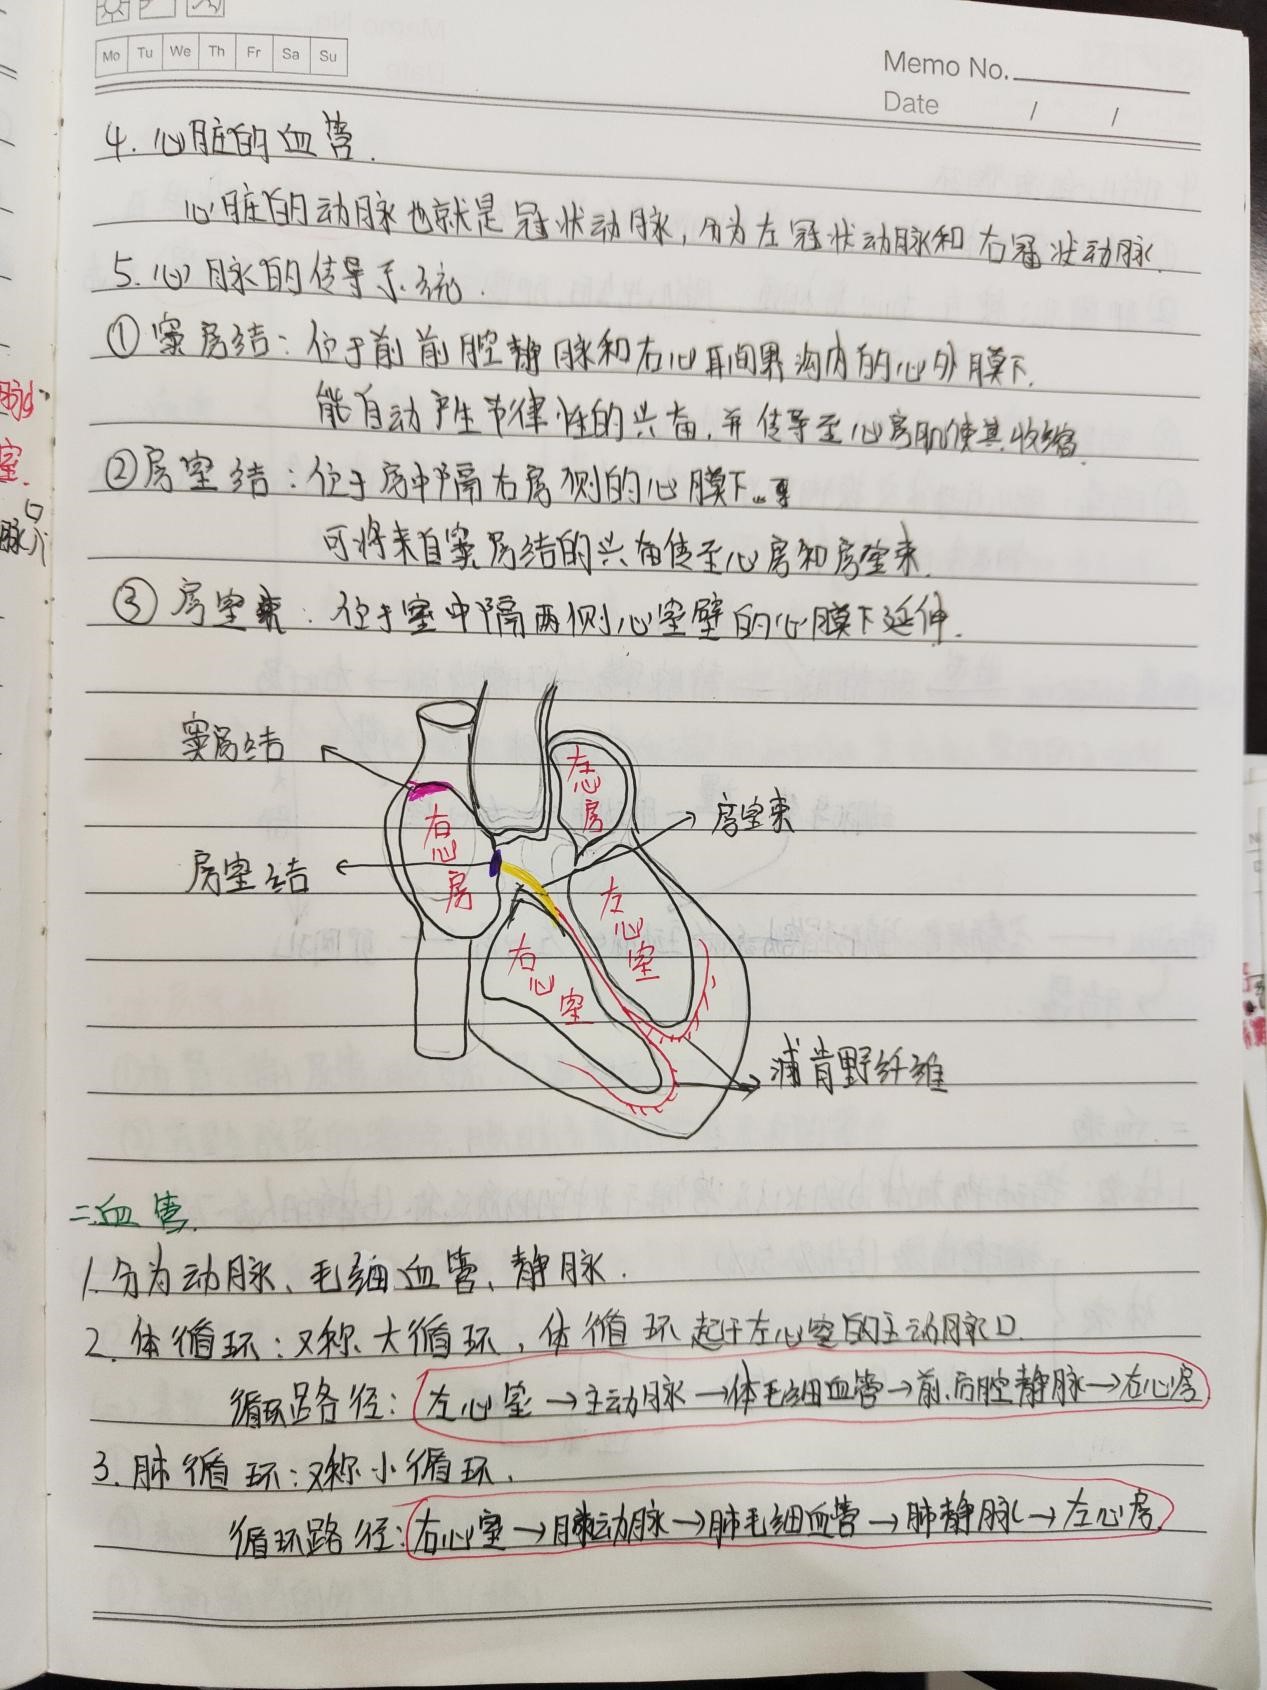 Mo Tu We Th Fr Sa Su
Memo No.
Date / /
4. 心脏的血管.
心脏的动脉也就是冠状动脉,分为左冠状动脉和右冠状动脉.
5. 心脉的传导系统.
①窦房结:位于前前腔静脉和右心耳间界沟内的心外膜下.
能自动产生节律性的兴奋,并传导至心房肌使其收缩.
②房室结:位于房中隔右房侧的心膜下..
可将来自窦房结的兴奋传至心房和房室束.
③房室束:位于室中隔两侧心室壁的心膜下延伸.
窦房结
左心房
右心房
房室束
房室结
左心室
右心室
浦肯野纤维
二.血管.
1.分为动脉、毛细血管、静脉.
2.体循环:又称大循环,体循环起于左心室的主动脉口.
循环路径:左心室→主动脉→体毛细血管→前.后腔静脉→右心房
3.肺循环:又称小循环.
循环路径:右心室→肺动脉→肺毛细血管→肺静脉→左心房.
脉
室.
口
脉